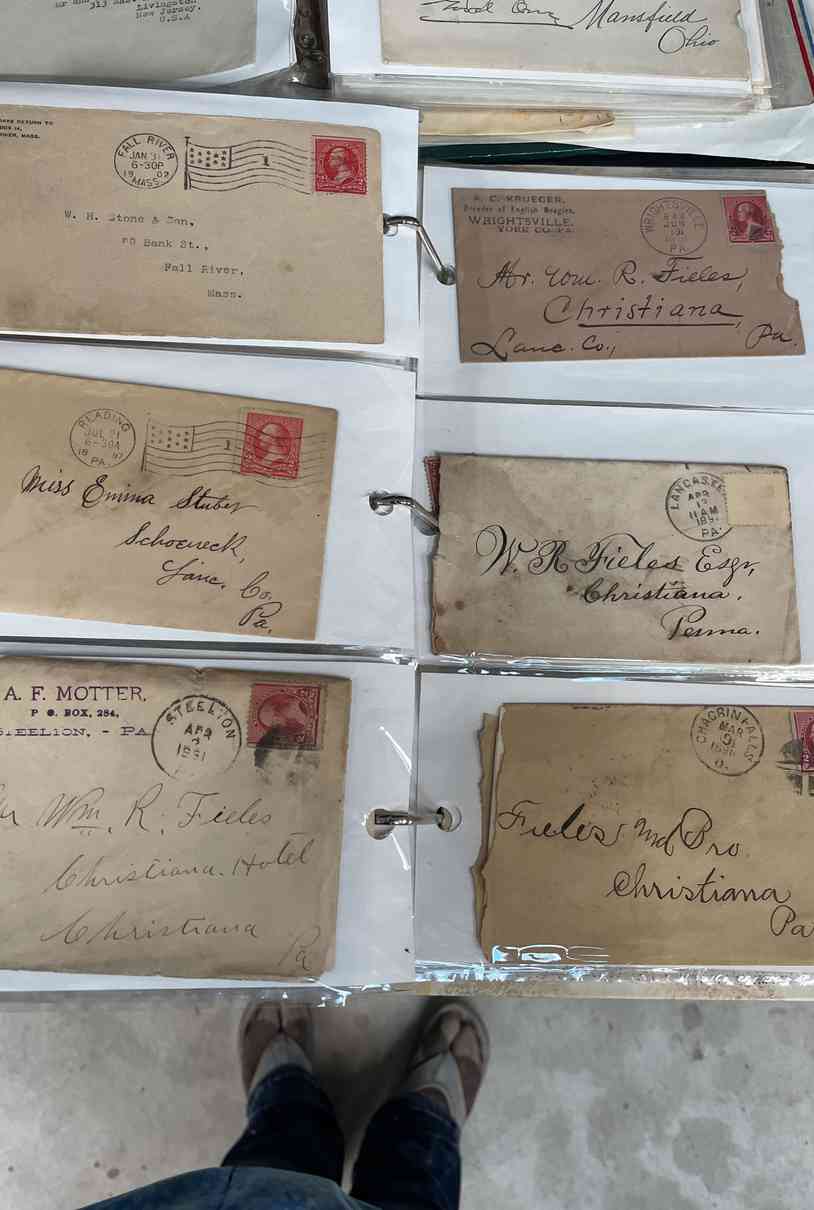 313
Livingston
New Jersey.
U.S.A
Mansfield
Ohio
DAYS RETURN TO
MASS.
FALL RIVER
JAN 31
6-30P
19 02
MASS.
1
W. H. Stone & Son,
Bank St.,
Fall River,
Mass.
A. C. KRUEGER,
Breeder of English Beagles,
WRIGHTSVILLE,
YORK CO. PA.
WRIGHTSVILLE
JUN
PA.
Mr. Wm. R. Fieles,
Christiana,
Lanc. Co., Pa.
READING
JUL 21
6-30A
18 97
PA.
1
Miss Emma Stuber
Schoeneck,
Lanc. Co.
Pa.
LANCASTE
APR
11 AM
PA.
W. R. Fieles Esqr,
Christiana.
Penna.
A. F. MOTTER,
P. O. BOX, 284,
STEELTON, - PA.
STEELTON
APR
1891
Mr Wm. R. Fieles
Christiana Hotel
Christiana
Pa
CHAGRIN FALLS
MAR
O.
Fieles And Bro
Christiana
Pa